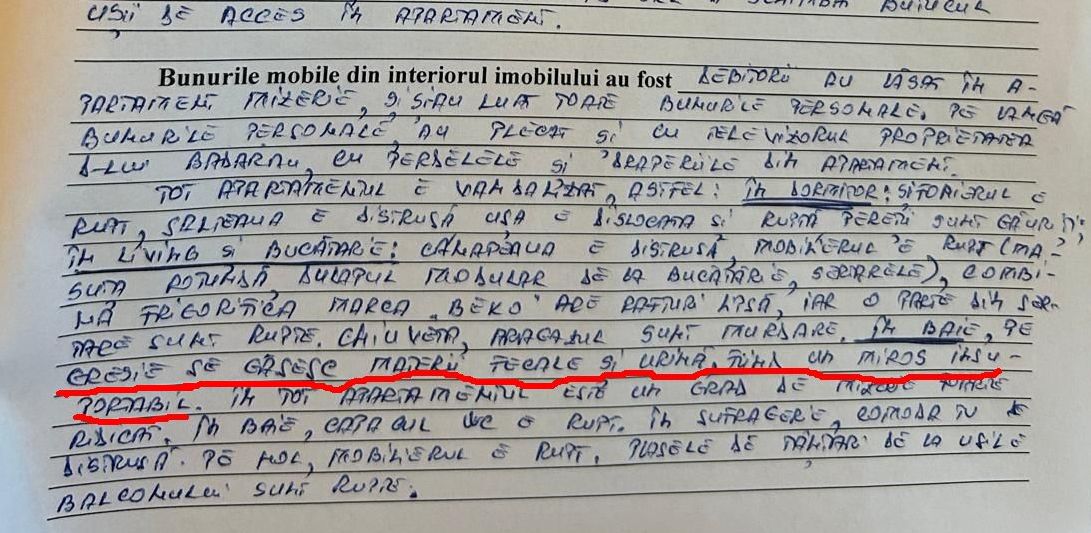 UȘII DE ACCES ÎN APARTAMENT.
Bunurile mobile din interiorul imobilului au fost DEBITORII AU LĂSAT ÎN A-
PARTAMENT MIZERIE, ȘI ȘI-AU LUAT TOATE BUNURILE PERSONALE. PE LÂNGĂ
BUNURILE PERSONALE, AU PLECAT ȘI CU TELEVIZORUL PROPRIETATEA
D-LUI BADARAU, CU PERDELELE ȘI DRAPERIILE DIN APARTAMENT.
TOT APARTAMENTUL E VANDALIZAT, ASTFEL: ÎN DORMITOR: ȘIFONIERUL E
RUPT, SALTEAUA E DISTRUSĂ UȘA E DISLOCATA ȘI RUPTĂ PEREȚII SUNT GĂURIȚI;
ÎN LIVING ȘI BUCĂTARIE: CANAPEAUA E DISTRUSĂ, MOBILIERUL E RUPT (MA-
SUTA ROTUNDĂ, DULAPUL MODULAR DE LA BUCĂTĂRIE, SERTARELE), COMBI-
NĂ FRIGORIFICA MARCA BEKO ARE RAFTURI LIPSĂ, IAR O PARTE DIN SER-
TARE SUNT RUPTE. CHIUVETA, ARAGAZUL SUNT MURDARE. ÎN BAIE, PE
GRESIE SE GĂSESC MATERII FECALE ȘI URINĂ, FIIND UN MIROS INSU-
PORTABIL. ÎN TOT APARTAMENTUL ESTE UN GRAD DE MIZERIE FOARTE
RIDICAT. ÎN BAIE, CAPACUL WC E RUPT. ÎN SUFRAGERIE, COMODA TV E
DISTRUSĂ. PE HOL, MOBILIERUL E RUPT. PLASELE DE ȚÂNȚARI DE LA UȘILE
BALCONULUI SUNT RUPTE.